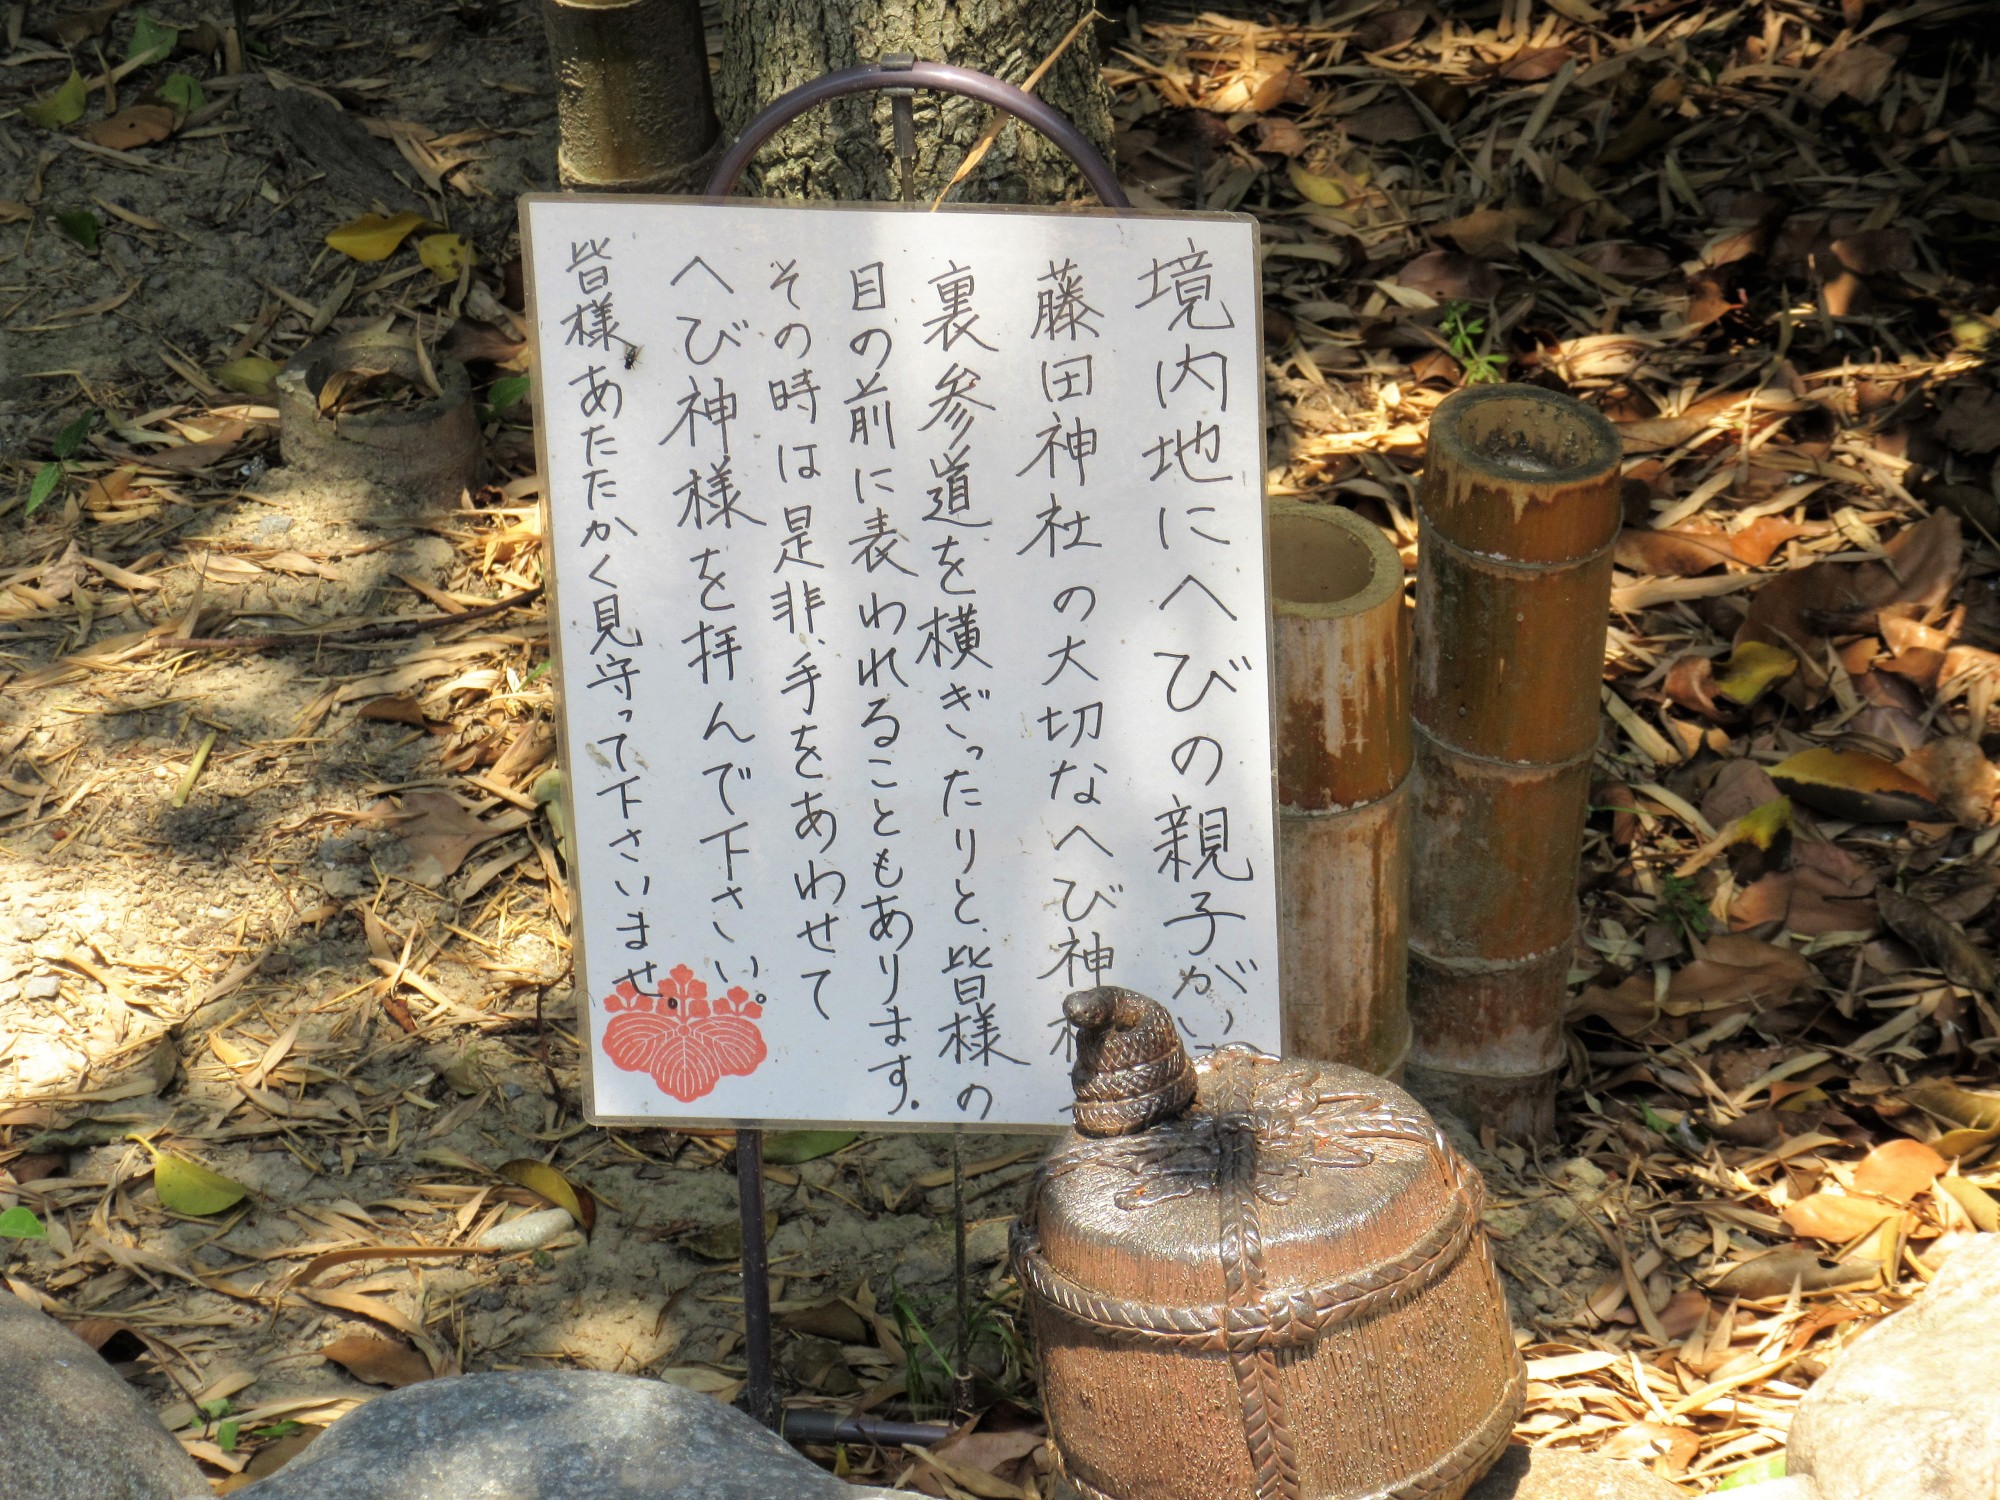 境内地にへびの親子がい
藤田神社の大切なへび神様
裏参道を横ぎったりと、皆様の
目の前に表われることもあります。
その時は是非、手をあわせて
へび神様を拝んで下さい。
皆様あたたかく見守って下さいませ。